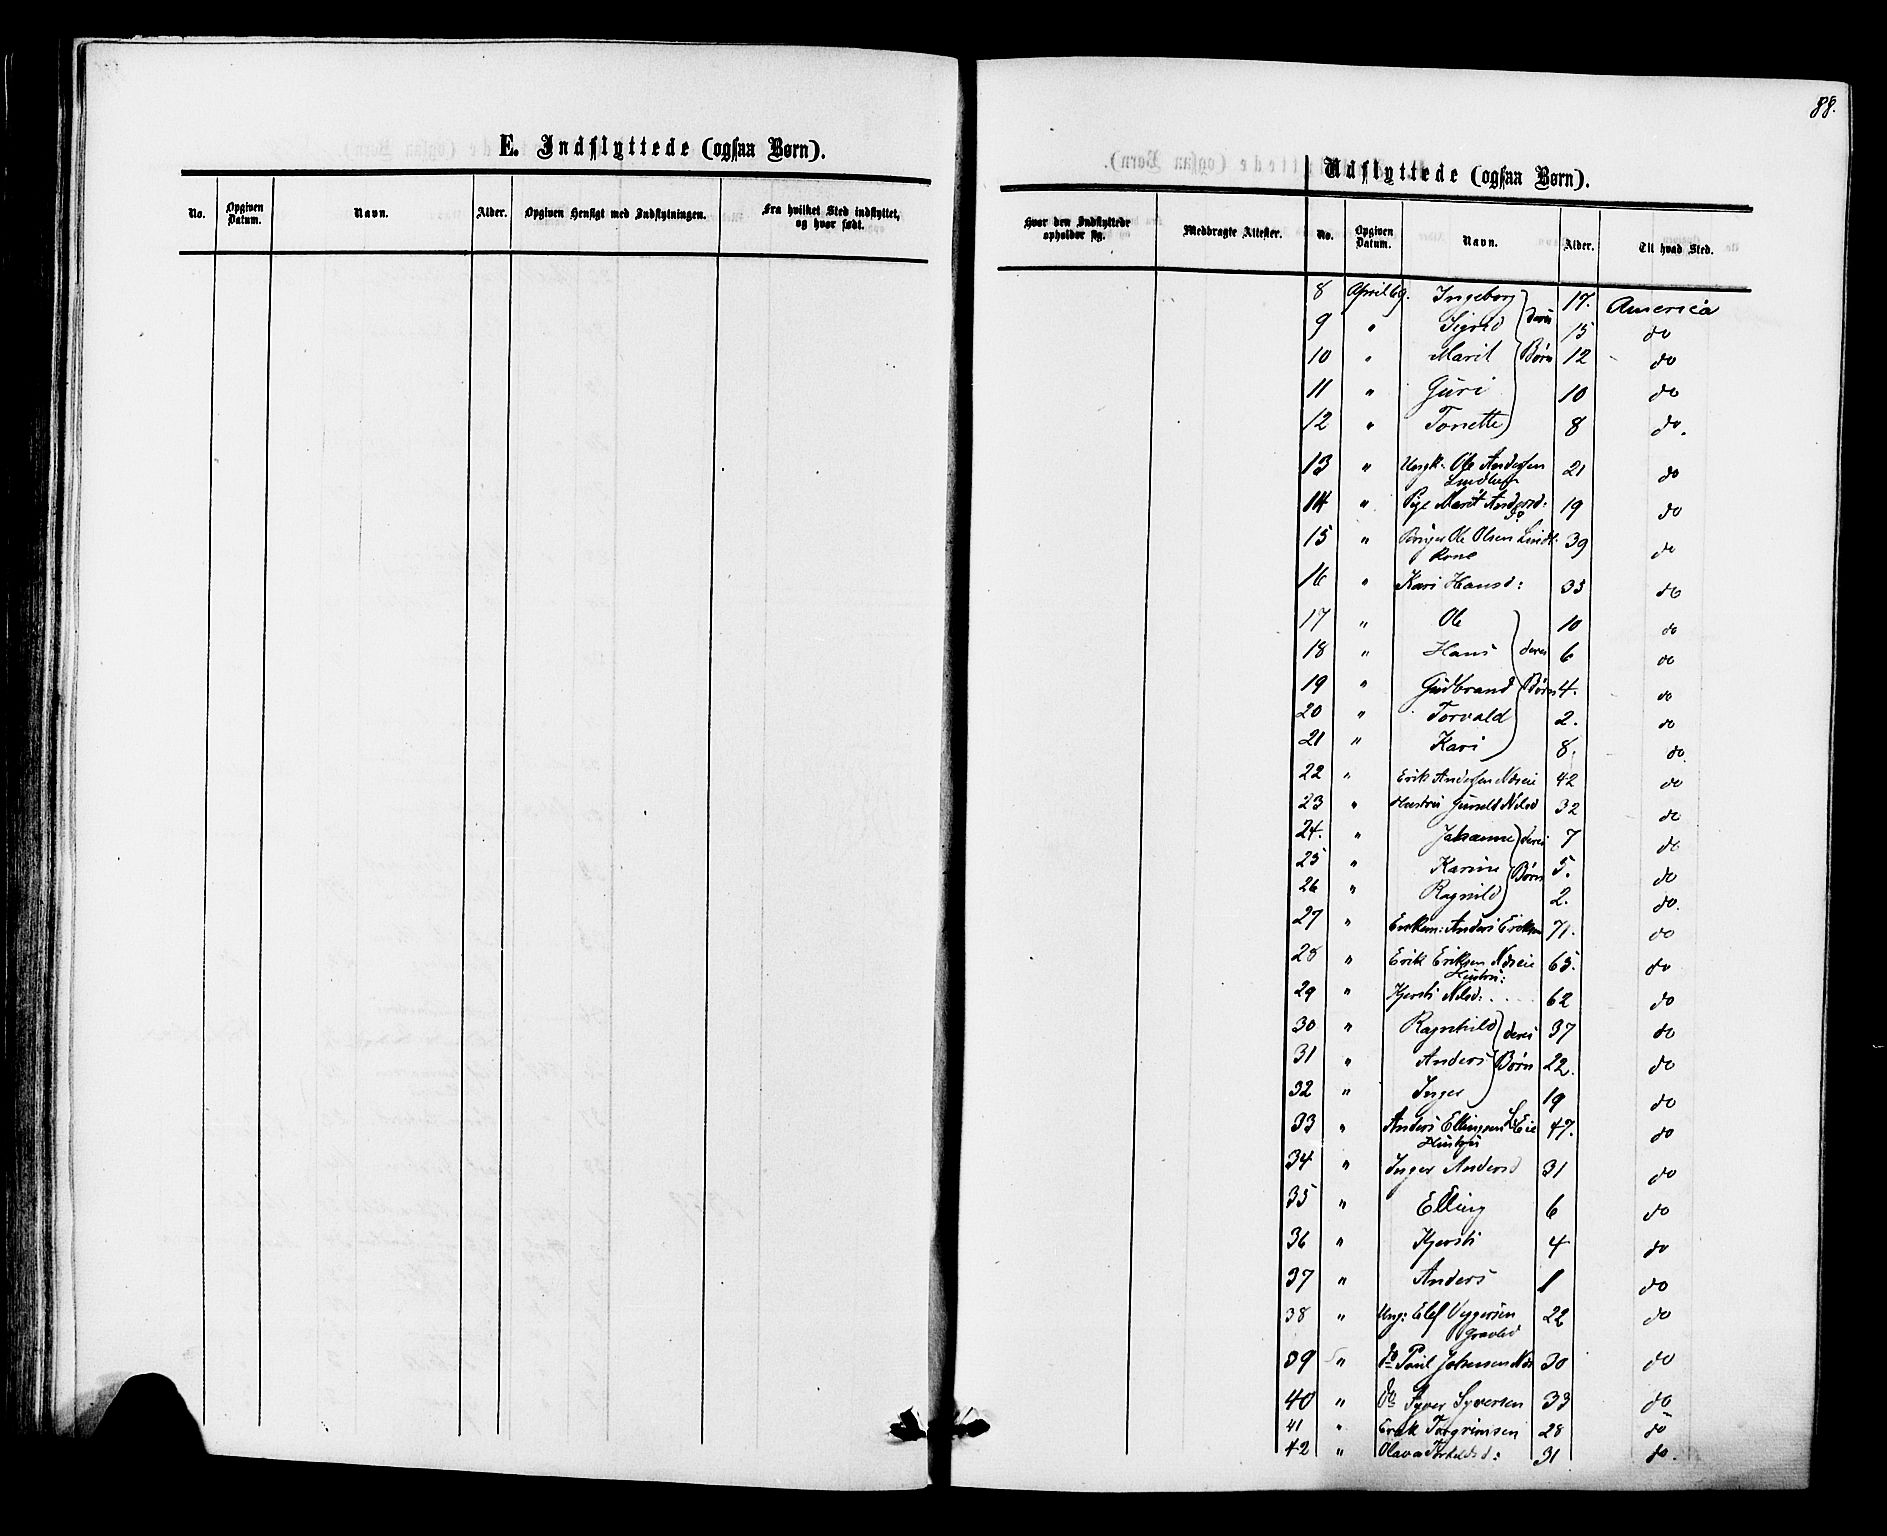 88.
E. Indflyttede (ogsaa Børn).
No.
Opgiven Datum.
Navn.
Alder.
Opgiven Hensigt med Indflytningen.
Fra hvilket Sted indflyttet, og hvor født.
Hvor den Indflyttede opholder sig.
Medbragte Attester.
Udflyttede (ogsaa Børn).
No.
Opgiven Datum.
Navn.
Alder.
Til hvad Sted.
8 April 69. Ingeborg 17. America
9 " Sigrid deres 15 do
10 " Marit Børn 12 do
11 " Guri 10 do
12 " Tonette 8 do.
13 " Ungk. Ole Andersen 21 do
14 " Pige Marit Andersd: do 19 do
15 " Ole Olsen Lindl: 39 do
Kone
16 " Kari Hansd: 33 do
17 " Ole 10 do
18 " Hans deres 6 do
19 " Gudbrand Børn 4. do
20 " Torvald 2. do
21 " Kari 8. do.
22 " Erik Andersen Næseie 42 do
23 " Hustru Gunild Nilsd 32 do
24. " Johanne deres 7 do
25 " Karine Børn 5. do
26 " Ragnild 2. do.
27 " Enkem: Anders Eriksen 71. do
28 " Erik Eriksen Næseie 65. do
Hustru:
29 " Kjersti Nilsd: 62 do
30 " Ragnhild deres 37 do
31 " Anders Børn 22. do
32 " Inger 19 do
33 " Anders Ellingsen Eie 47. do
Hustru
34 " Inger Andersd 31 do
35 " Elling 6 do
36 " Kjersti 4 do
37 " Anders 1 do
38 " Ung: Elef 22 do
39 " do Paul Johnsen 30 do
40 " do Syver Syversen 33 do
41 " Erik Torgrimsen 28 do
42 " Olava Torkildsd: 31 do.